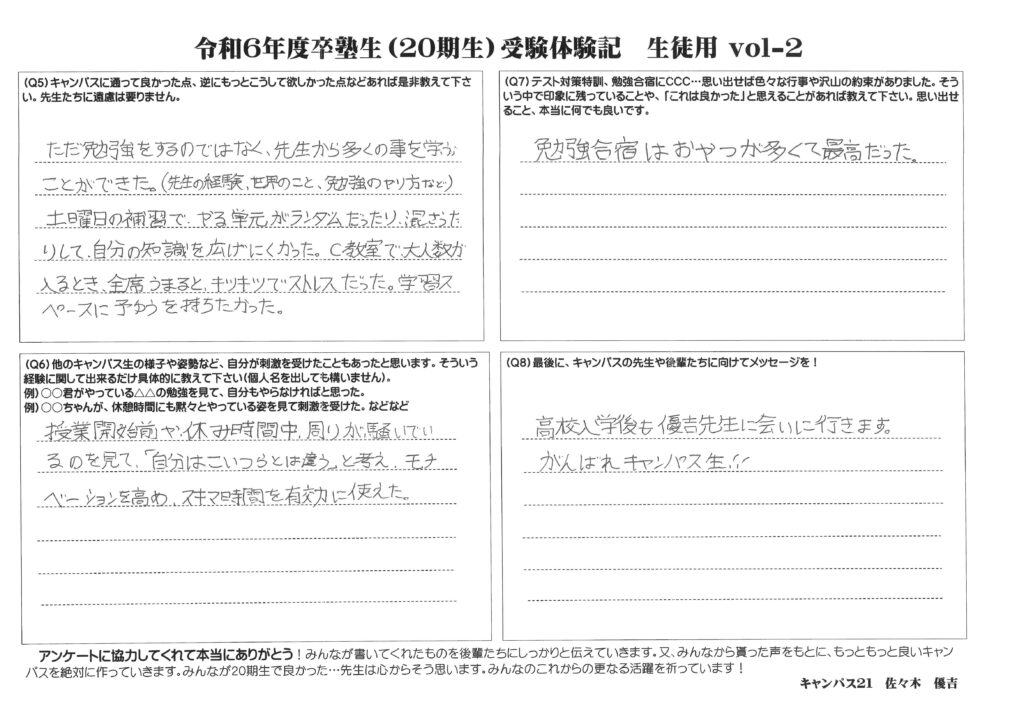 令和6年度卒塾生（20期生）受験体験記　生徒用 vol-2
（Q5）キャンパスに通って良かった点、逆にもっとこうして欲しかった点などあれば是非教えて下さ
い。先生たちに遠慮は要りません。
ただ勉強をするのではなく、先生から多くの事を学ぶ
ことができた。（先生の経験、世界のこと、勉強のヤリ方など）
土曜日の補習で、やる単元がランダムだったり、混ざった
りして、自分の知識を広げにくかった。C教室で、大人数が
入るとき、全席うまると、キツキツでストレスだった。学習ス
ペースに予ゆうを持ちたかった。
（Q6）他のキャンパス生の様子や姿勢など、自分が刺激を受けたこともあったと思います。そういう
経験に関して出来るだけ具体的に教えて下さい（個人名を出しても構いません）。
例）○○君がやっている△△の勉強を見て、自分もやらなければと思った。
例）○○ちゃんが、休憩時間にも黙々とやっている姿を見て刺激を受けた。などなど
授業開始前や、休み時間中、周りが騒いでい
るのを見て、「自分はこいつらとは違う」と考え、モチ
ベーションを高め、スキマ時間を有効に使えた。
（Q7）テスト対策特訓、勉強合宿にCCC…思い出せば色々な行事や沢山の約束がありました。そう
いう中で印象に残っていることや、「これは良かった」と思えることがあれば教えて下さい。思い出せ
ること、本当に何でも良いです。
勉強合宿はおやつが多くて最高だった。
（Q8）最後に、キャンパスの先生や後輩たちに向けてメッセージを！
高校入学後も優吉先生に会いに行きます。
がんばれキャンパス生!!
アンケートに協力してくれて本当にありがとう！みんなが書いてくれたものを後輩たちにしっかりと伝えていきます。又、みんなから貰った声をもとに、もっともっと良いキャン
パスを絶対に作っていきます。みんなが20期生で良かった…先生は心からそう思います。みんなのこれからの更なる活躍を祈っています！
キャンパス21　佐々木　優吉